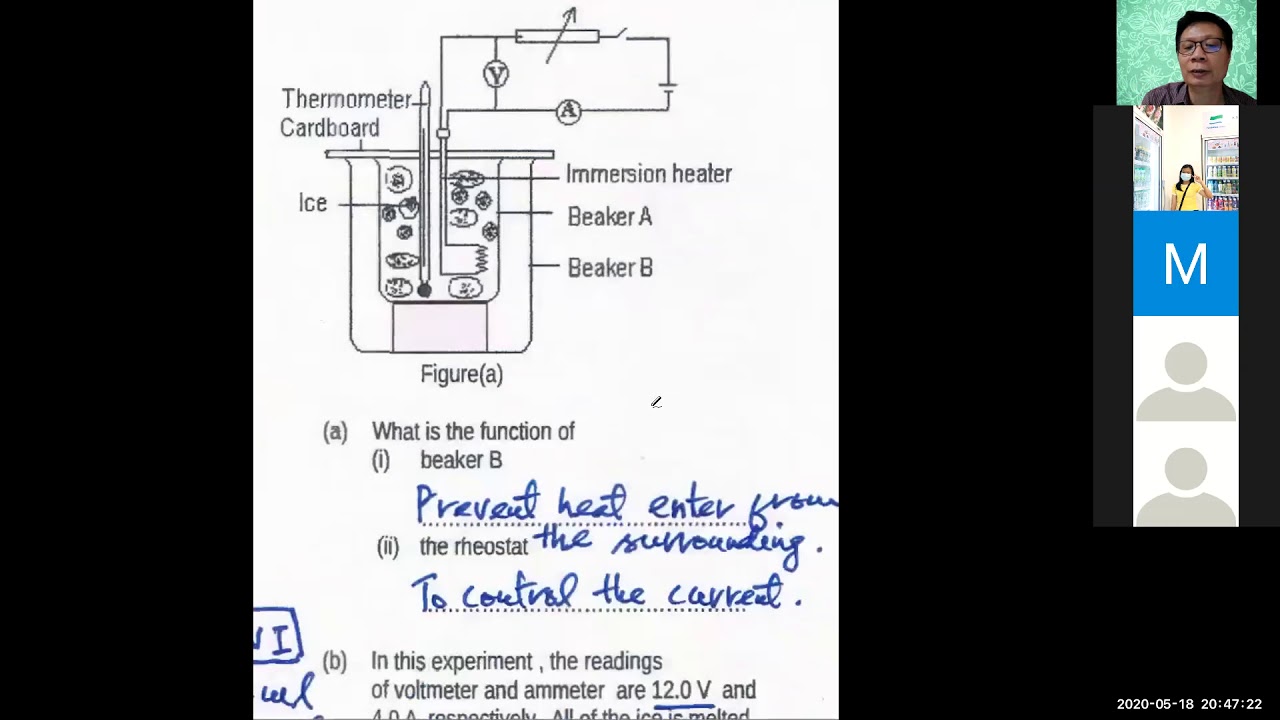 V
A
Thermometer
Cardboard
Immersion heater
Ice
Beaker A
Beaker B
Figure(a)
(a) What is the function of
(i) beaker B
Prevent heat enter from
(ii) the rheostat the surrounding.
To control the current.
(b) In this experiment , the readings
of voltmeter and ammeter are 12.0 V and
4.0 A respectively. All of the ice is melted
M
2020-05-18 20:47:22